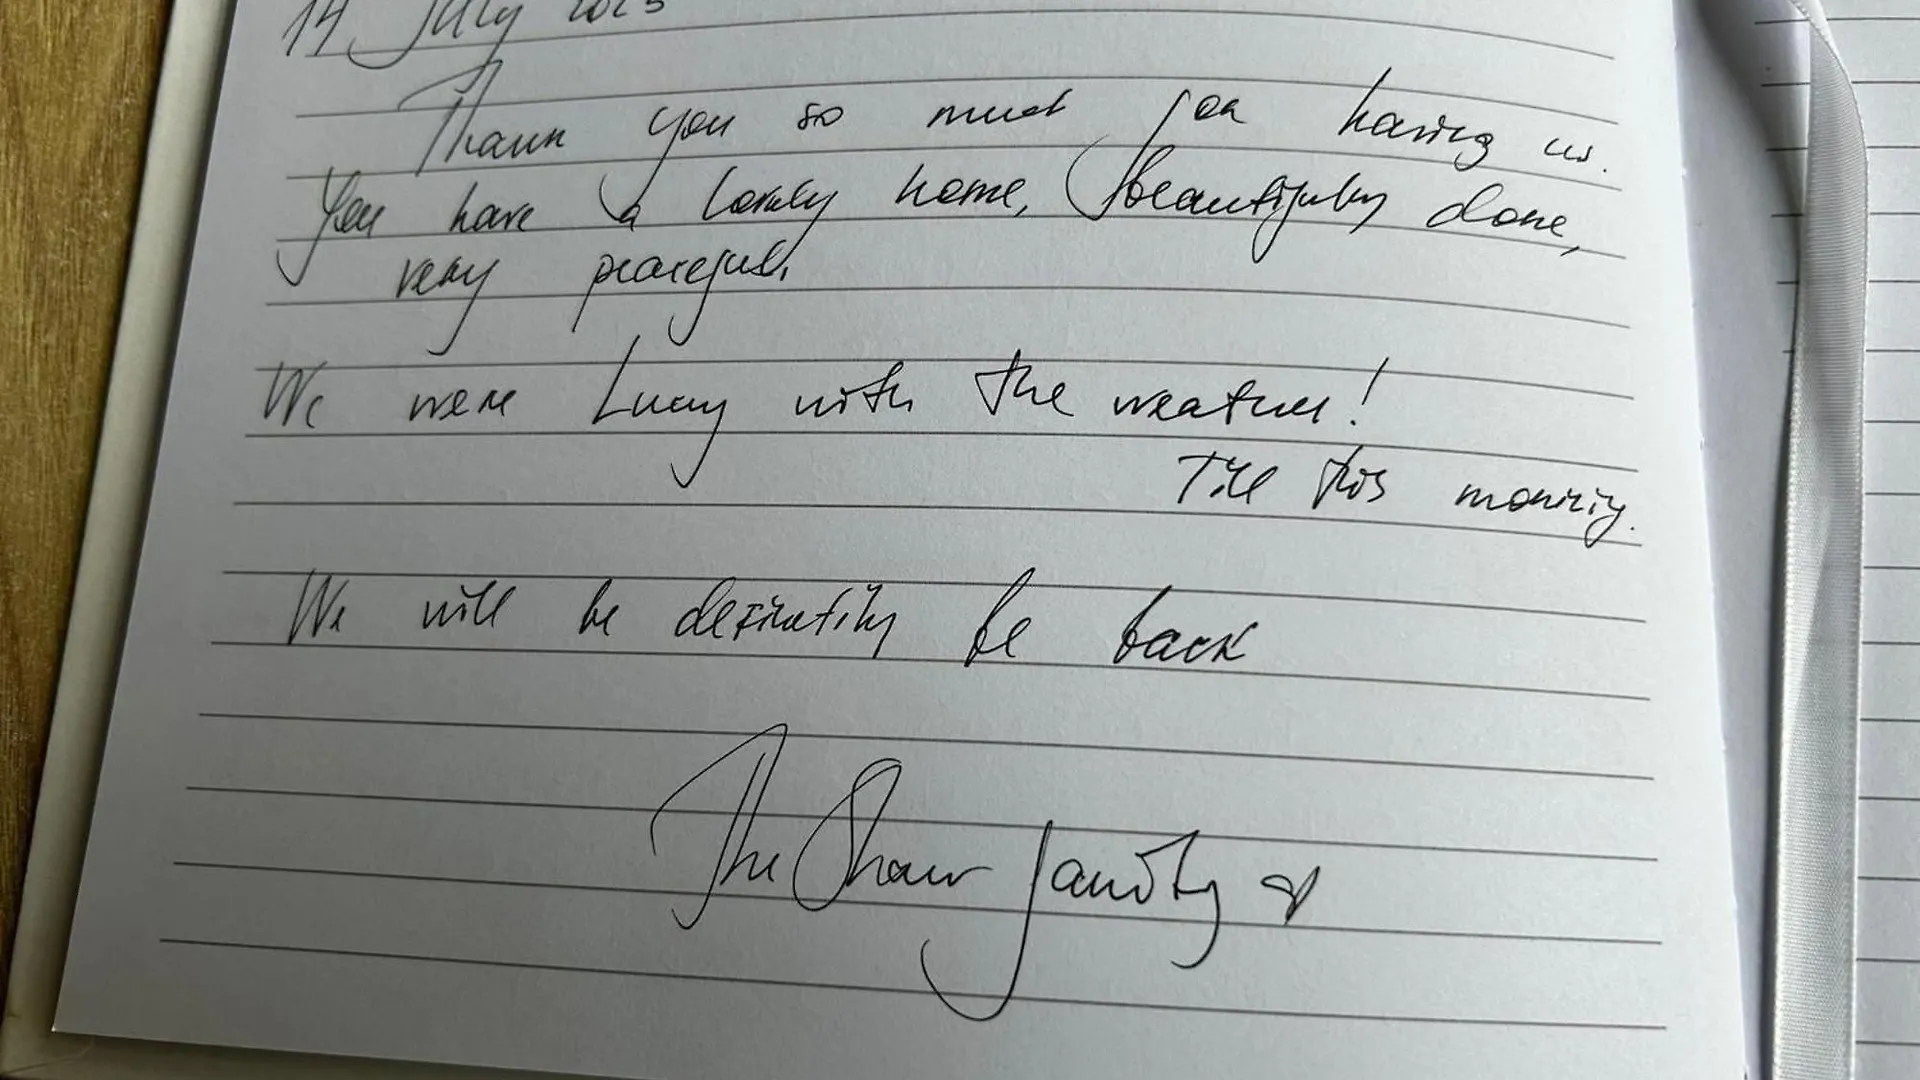 14 July 2023
Thank you so much for having us.
You have a lovely home, beautifully done,
very peaceful.
We were lucky with the weather!
Till this morning.
We will be definitely be back
The Shaw family